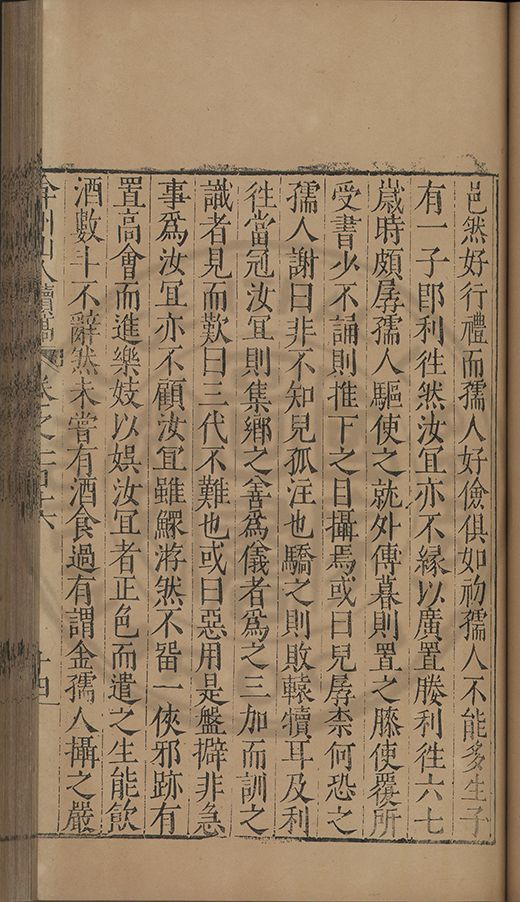 邑然好行禮而孺人好儉俱如初孺人不能多生子
有一子卽利徃然汝宜亦不緣以廣置媵利徃六七
歲時頗孱孺人驅使之就外傳暮則置之膝使覆所
受書少不誦則推下之目攝焉或曰兒孱柰何恐之
孺人謝曰非不知兒孤注也驕之則敗轅犢耳及利
徃當冠汝宜則集鄉之善爲儀者爲之三加而訓之
識者見而歎曰三代不難也或曰惡用是盤擗非急
事爲汝宜亦不顧汝宜雖鰥游然不畱一俠邪跡有
置高會而進樂妓以娛汝宜者正色而遣之生能飲
酒數斗不辭然未嘗有酒食過有謂金孺人攝之嚴
弇州山人續稿 卷之一百十六 十四